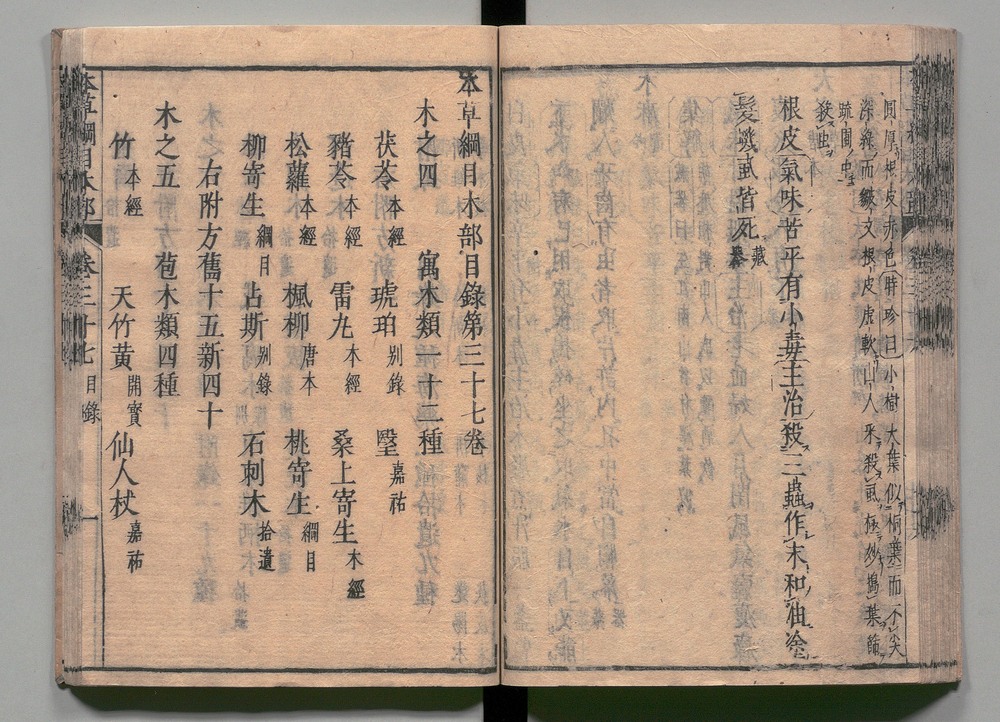 間原根皮赤色時珍曰小樹大葉似桐葉而不尖
深綠而皺文根皮虛軟山人采殺虱極妙搗葉篩
蔬圃中
殺虫
根皮氣味苦平有小毒主治殺三蟲作末和油塗
髮蟣虱皆死藏器
本草綱目木部目錄第三十七卷
木之四 寓木類一十二種
茯苓本經 琥珀别錄 瑿嘉祐
豬苓本經 雷丸本經 桑上寄生本經
松蘿本經 楓柳唐本 桃寄生綱目
柳寄生綱目 占斯别錄 石刺木拾遺
右附方舊十五新四十
木之五 苞木類四種
竹本經 天竹黄開寶 仙人杖嘉祐
本草綱目木部 卷三十七目錄 一